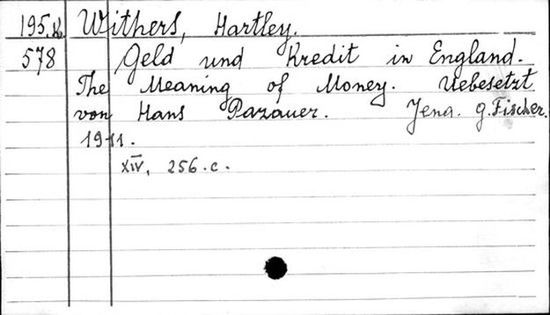 195.H. Withers, Hartley.
578 Geld und Kredit in England.
The Meaning of Money. Uebesetzt
von Hans Pazauer. Jena. G. Fischer.
1911.
XIV, 256.c.